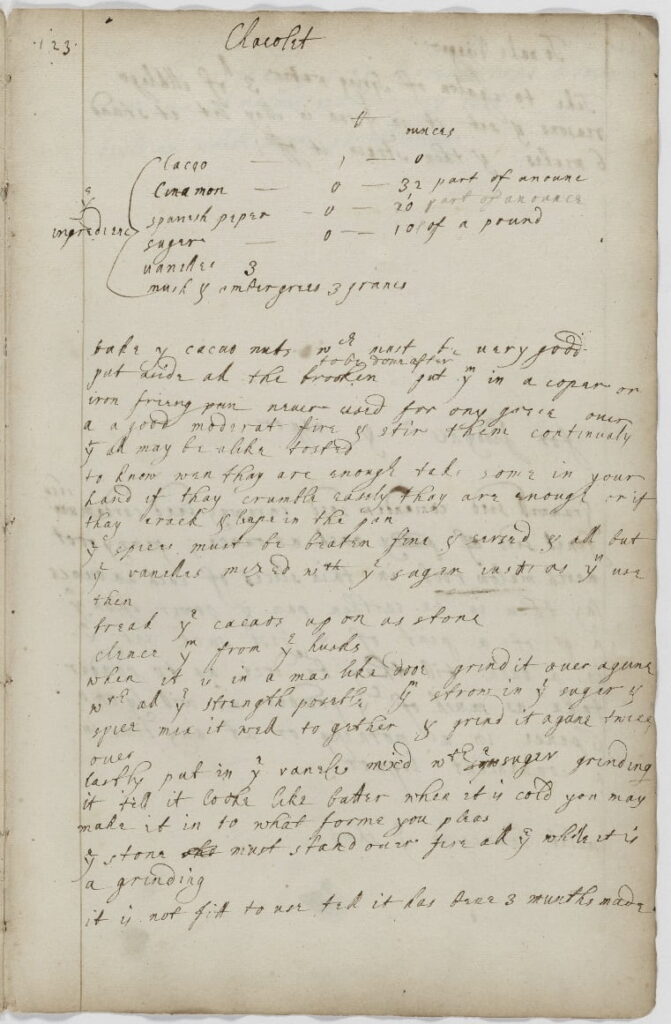 123
Chacolet
tt ounces
Cacao — 1 — 0
Cinamon — 0 — 32 part of anounc
spanish peper — 0 — 20 part of anounce
suger — 0 — 10 of a pound
vanelles 3
musk & ambergrees 3 granes
yᵉ ingredienc
take yᵉ cacao nuts wᶜʰ must be very good
to be done after
put aside all the broken put yᵐ in a coper or
iron frieng pan never used for any grece over
a a good moderat fire & stir them continualy
yᵗ all may be alike tosted
to know wen thay are enough take some in your
hand if thay crumble easely thay are enough or if
thay crack & leape in the pan
yᵉ spices must be beaten fine & earsed & all but
yᵉ vaneles mixed wᵗʰ yᵉ suger as yᵘ use
then
bread yᵉ cacaos up on as stone
clence yᵐ from yᵉ husks
when it is in a mas like dooe grind it over agane
wᵗʰ all yᵉ strength posible yⁿ strow in yᵉ suger &
spice mix it well to gether & grind it agane twice
over
lastly put in yᵉ vaneles mixed wᵗʰ suger grinding
it tell it looke like butter when it is cold you may
make it in to what forme you pleas
yᵉ stone must stand over fire all yᵉ while it is
a grinding
it is not fitt to use tell it has bene 3 munths made